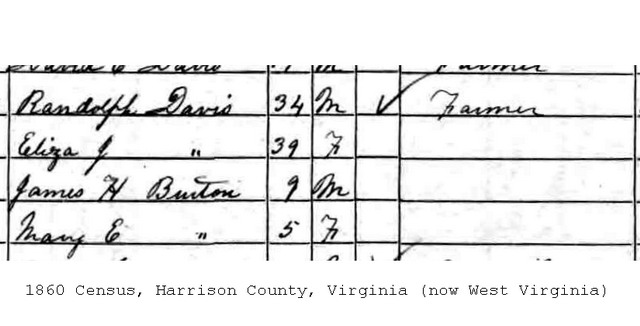 David E Davis M Farmer
Randolph Davis 34 M ✓ Farmer
Eliza J " 39 F
James H Burton 9 M
Mary E " 5 F
1860 Census, Harrison County, Virginia (now West Virginia)